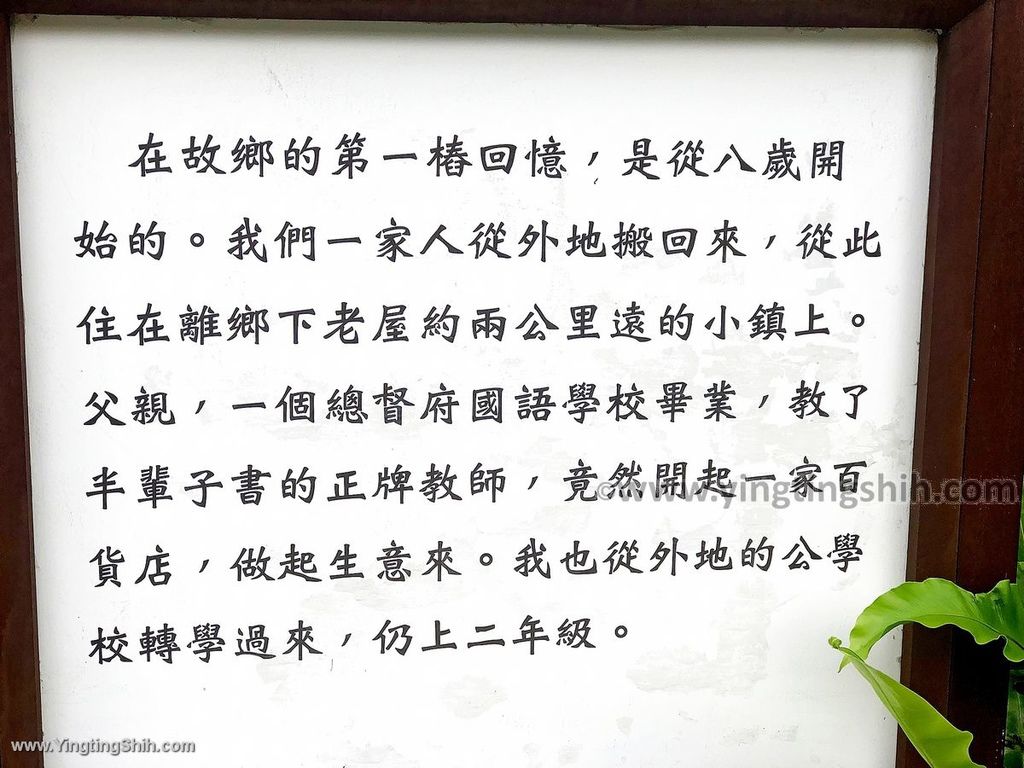 在故鄉的第一樁回憶，是從八歲開
始的。我們一家人從外地搬回來，從此
住在離鄉下老屋約兩公里遠的小鎮上。
父親，一個總督府國語學校畢業，教了
半輩子書的正牌教師，竟然開起一家百
©www.yingtingshih.com
貨店，做起生意來。我也從外地的公學
校轉學過來，仍上二年級。
www.YingtingShih.com